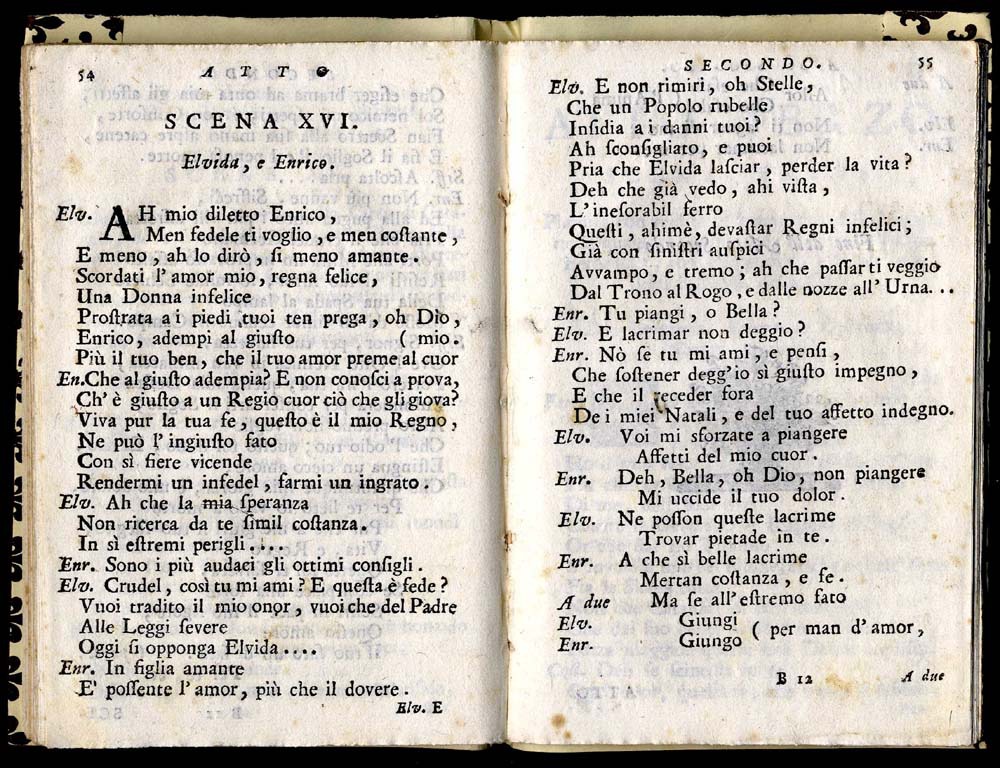 54 ATTO
SCENA XVI.
Elvida, e Enrico.
Elv. AH mio diletto Enrico,
Men fedele ti voglio, e men coſtante,
E meno, ah lo dirò, ſi meno amante.
Scordati l'amor mio, regna felice,
Una Donna infelice
Proſtrata a i piedi tuoi ten prega, oh Dio,
Enrico, adempi al giuſto (mio.
Più il tuo ben, che il tuo amor preme al cuor
En. Che al giuſto adempia? E non conoſci a prova,
Ch' è giuſto a un Regio cuor ciò che gli giova?
Viva pur la tua fe, queſto è il mio Regno,
Ne può l'ingiuſto fato
Con sì fiere vicende
Rendermi un infedel, farmi un ingrato.
Elv. Ah che la mia ſperanza
Non ricerca da te ſimil coſtanza.
In sì eſtremi perigli....
Enr. Sono i più audaci gli ottimi conſigli.
Elv. Crudel, così tu mi ami? E queſta è fede?
Vuoi tradito il mio onor, vuoi che del Padre
Alle Leggi ſevere
Oggi ſi opponga Elvida....
Enr. In figlia amante
E' poſſente l'amor, più che il dovere.
Elv. E
SECONDO. 55
Elv. E non rimiri, oh Stelle,
Che un Popolo rubelle
Inſidia a i danni tuoi?
Ah ſconſigliato, e puoi
Pria che Elvida laſciar, perder la vita?
Deh che già vedo, ahi viſta,
L'ineſorabil ferro
Queſti, ahimè, devaſtar Regni infelici;
Già con ſiniſtri auſpici
Avvampo, e tremo; ah che paſſar ti veggio
Dal Trono al Rogo, e dalle nozze all' Urna...
Enr. Tu piangi, o Bella?
Elv. E lacrimar non deggio?
Enr. Nò ſe tu mi ami, e penſi,
Che ſoſtener degg'io sì giuſto impegno,
E che il receder fora
De i miei Natali, e del tuo affetto indegno.
Elv. Voi mi sforzate a piangere
Affetti del mio cuor.
Enr. Deh, Bella, oh Dio, non piangere
Mi uccide il tuo dolor.
Elv. Ne poſſon queſte lacrime
Trovar pietade in te.
Enr. A che sì belle lacrime
Mertan coſtanza, e fe.
A due Ma ſe all'eſtremo fato
Elv. Giungi
( per man d'amor,
Enr. Giungo
B 12 A due